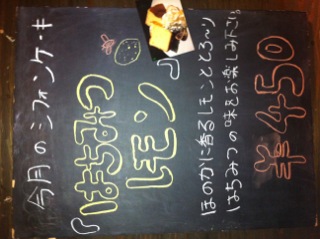 今月のシフォンケーキ
『はちみつ
レモン』
ほのかに香るレモンととろ〜り
はちみつの味をお楽しみ下さい
¥450